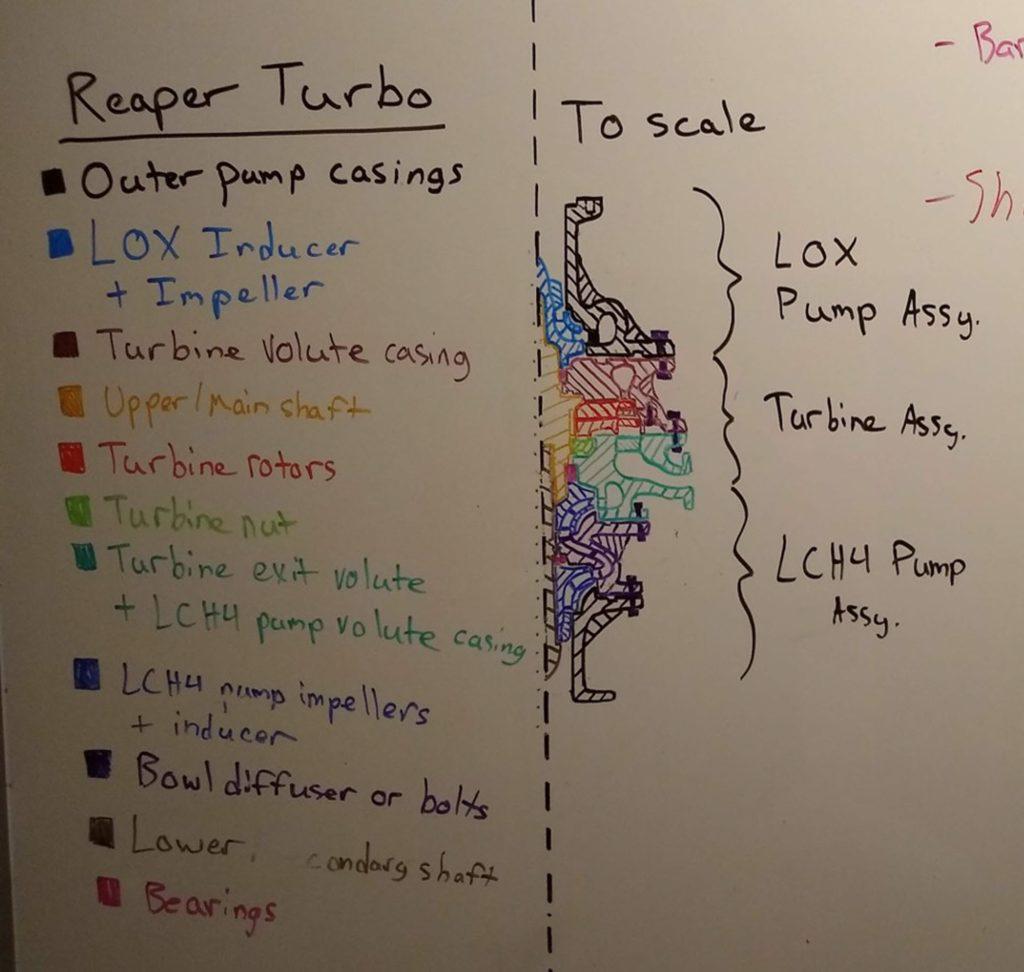 Reaper Turbo
Outer pump casings
LOX Inducer
+ Impeller
Turbine volute casing
Upper/main shaft
Turbine rotors
Turbine nut
Turbine exit volute
+ LCH4 pump volute casing
LCH4 pump impellers
+ inducer
Bowl diffuser or bolts
Lower, shaft
Bearings
To scale
LOX
Pump Assy.
Turbine Assy.
LCH4 Pump
Assy.
- Bar
- Sh